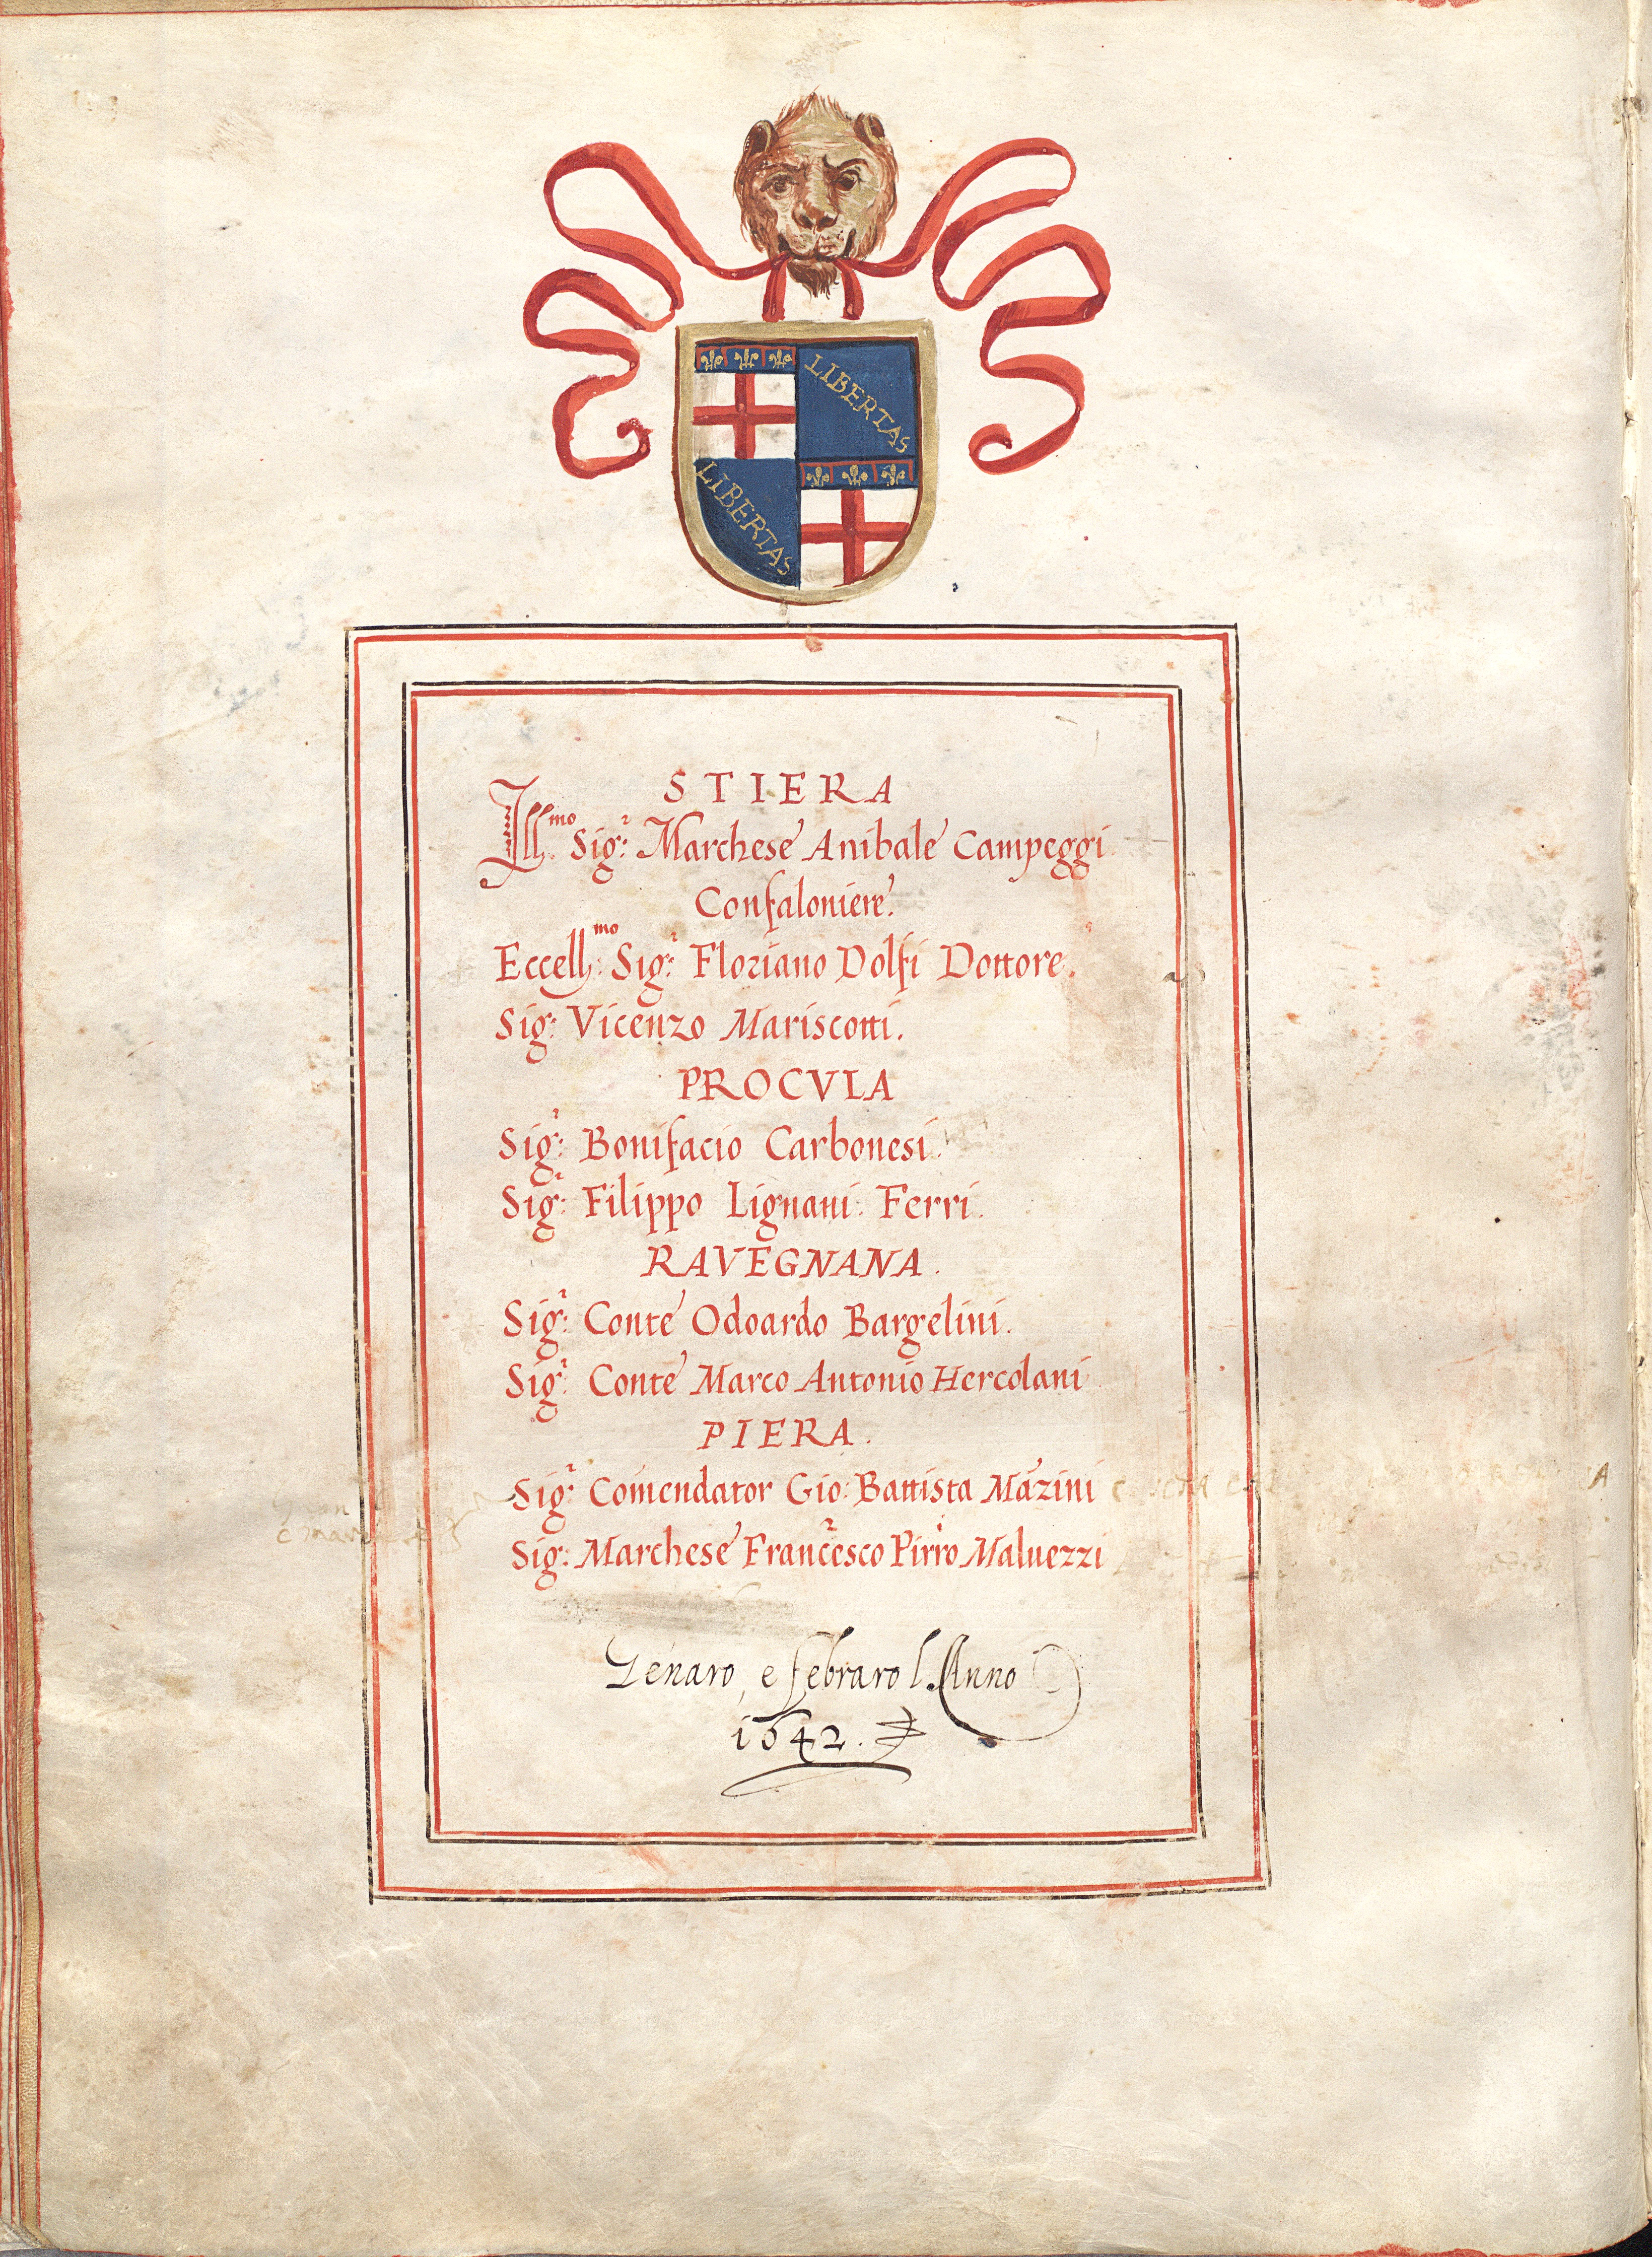 LIBERTAS
LIBERTAS
STIERA
Ill.mo Sig.r Marchese Anibale Campeggi
Confaloniere.
Eccell.mo Sig.r Floriano Dolfi Dottore.
Sig: Vicenzo Mariscotti.
PROCVLA
Sig.r Bonifacio Carbonesi.
Sig.r Filippo Lignani Ferri.
RAVEGNANA.
Sig.r Conte Odoardo Bargelini.
Sig.r Conte Marco Antonio Hercolani
PIERA.
Sig.r Comendator Gio: Battista Mazini
Sig: Marchese Francesco Pirro Maluezzi
Genaro, e febraro l'Anno
1642.